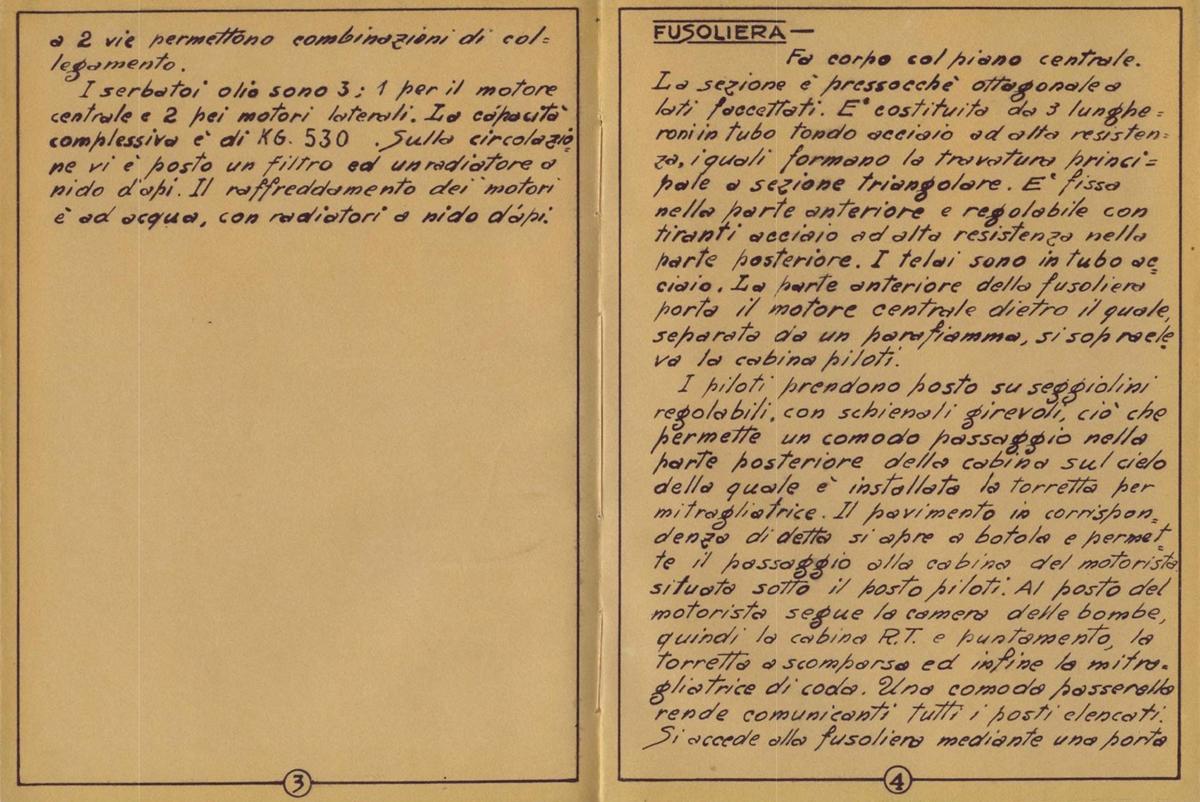 a 2 vie permettono combinazioni di col=
legamento.
I serbatoi olio sono 3: 1 per il motore
centrale e 2 pei motori laterali. La capacità
complessiva è di KG. 530 . Sulla circolazio=
ne vi è posto un filtro ed un radiatore a
nido d'api. Il raffreddamento dei motori
è ad acqua, con radiatori a nido d'api.
3
FUSOLIERA—
Fa corpo col piano centrale.
La sezione è pressocchè ottagonale a
lati faccettati. E' costituita da 3 lunghe=
roni in tubo tondo acciaio ad alta resisten=
za, i quali formano la travatura princi=
pale a sezione triangolare. E' fissa
nella parte anteriore e regolabile con
tiranti acciaio ad alta resistenza nella
parte posteriore. I telai sono in tubo ac=
ciaio. La parte anteriore della fusoliera
porta il motore centrale dietro il quale,
separata da un parafiamma, si sopraele=
va la cabina piloti.
I piloti prendono posto su seggiolini
regolabili, con schienali girevoli, ciò che
permette un comodo passaggio nella
parte posteriore della cabina sul cielo
della quale è installata la torretta per
mitragliatrice. Il pavimento in corrispon=
denza di detta si apre a botola e permet=
te il passaggio alla cabina del motorista
situata sotto il posto piloti. Al posto del
motorista segue la camera delle bombe,
quindi la cabina R.T. e puntamento, la
torretta a scomparsa ed infine la mitra=
gliatrice di coda. Una comoda passerella
rende comunicanti tutti i posti elencati.
Si accede alla fusoliera mediante una porta
4